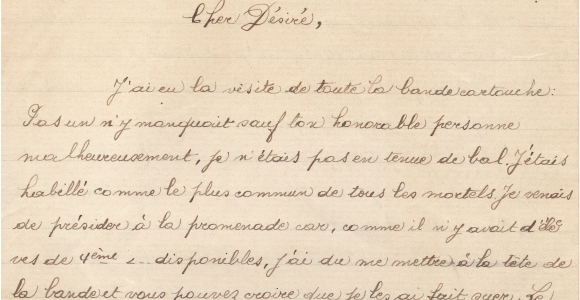 Cher Désiré,
J'ai eu la visite de toute la bande cartouche:
Pas un n'y manquait sauf ton honorable personne
malheureusement, je n'étais pas en tenue de bal. J'étais
habillé comme le plus commun de tous les mortels. Je venais
de présider à la promenade car, comme il n'y avait d'élè-
ves de 4ème disponibles, j'ai du me mettre à la tête de
la bande et vous pouvez croire que je les ai fait suer. Le